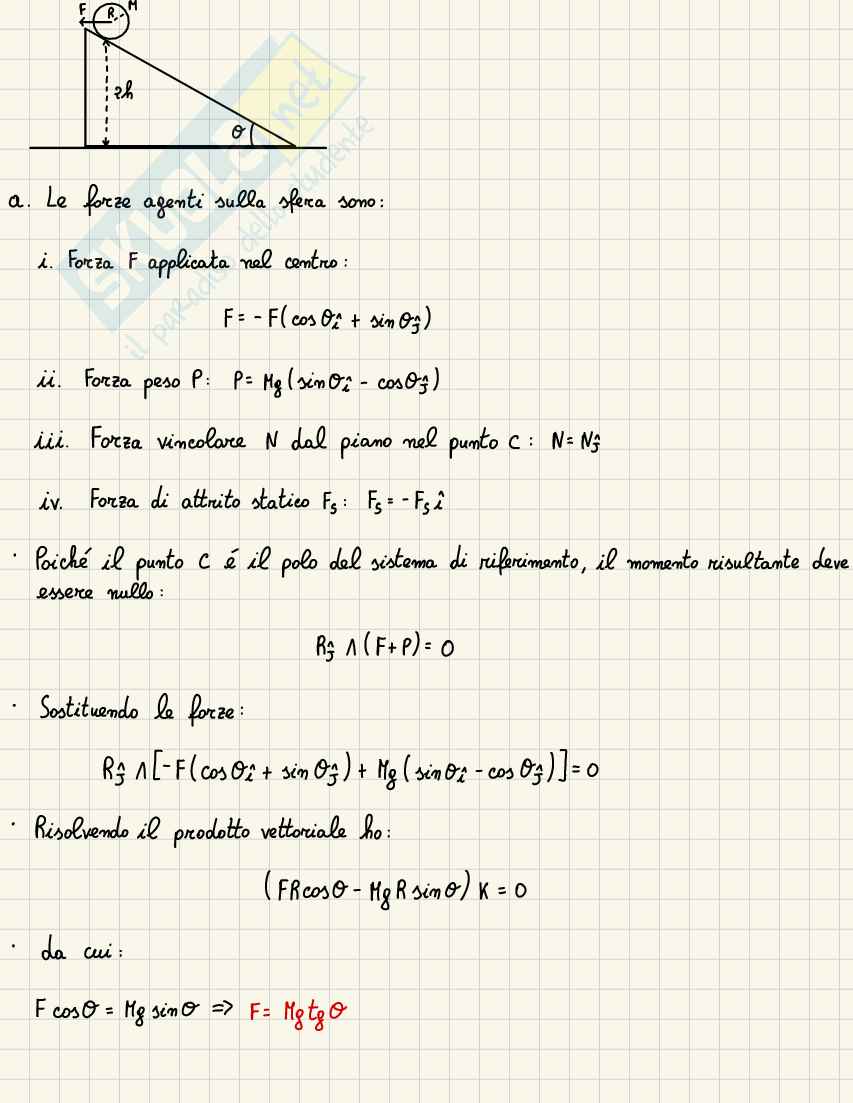 F R M
2h
θ
a. Le forze agenti sulla sfera sono:
i. Forza F applicata nel centro:
F = - F(cosθî + sinθĵ)
ii. Forza peso P: P = Mg(sinθî - cosθĵ)
iii. Forza vincolare N dal piano nel punto C: N = Nĵ
iv. Forza di attrito statico Fs: Fs = - Fs î
· Poiché il punto C é il polo del sistema di riferimento, il momento risultante deve
essere nullo:
Rĵ ∧ (F+P) = 0
· Sostituendo le forze:
Rĵ ∧ [-F(cosθî + sinθĵ) + Mg(sinθî - cosθĵ)] = 0
· Risolvendo il prodotto vettoriale ho:
(FRcosθ - MgRsinθ) K = 0
· da cui:
F cosθ = Mg sinθ => F = Mg tgθ
SKUOLA.net
il paradiso dello studente